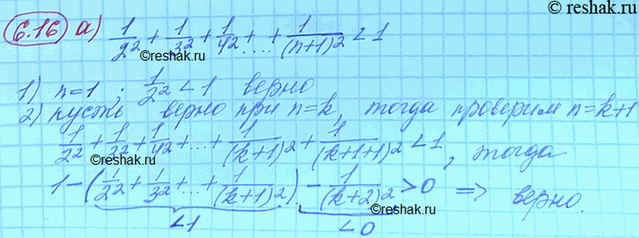 © reshak.ru
6.16 а) 1/2² + 1/3² + 1/4² + ... + 1/(n+1)² < 1
1) n=1 ; 1/2² < 1 верно
2) пусть верно при n=k, тогда проверим n=k+1
1/2² + 1/3² + 1/4² + ... + 1/(k+1)² + 1/(k+1+1)² < 1, тогда
1 - (1/2² + 1/3² + ... + 1/(k+1)²) - 1/(k+2)² > 0 => верно.
<1 <0
© reshak.ru